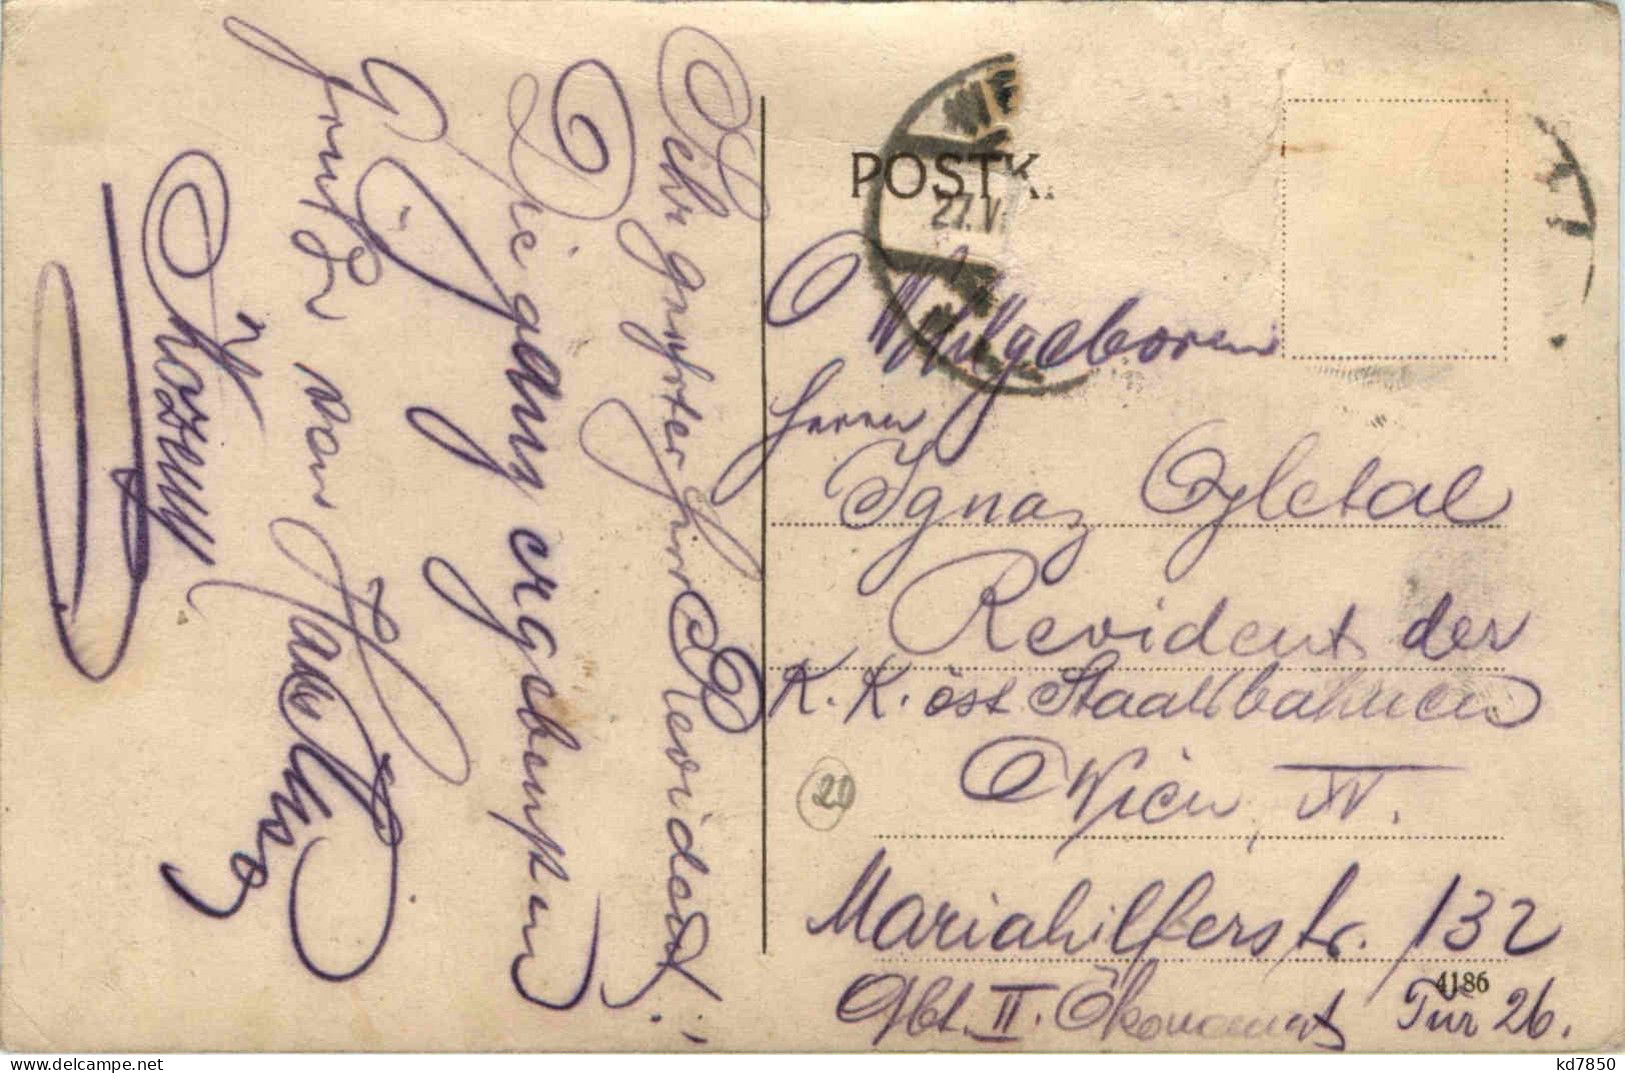 Sehr geehrter Herr Revident!
Die ganz ergebensten
Grüße von
Kozeny
POSTK
27.V
Wohlgeboren
Herrn
Ignaz
Revident der
K. K. öst Staatsbahnen
Wien XV.
Mariahilferstr. 132
Abt. II. Ökonomat Tür 26.
4186
20
kd7850